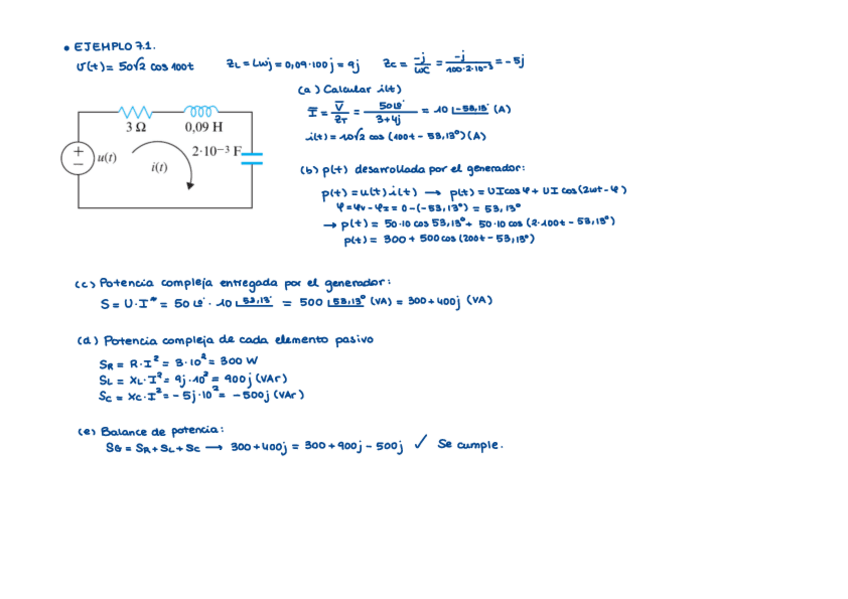 • EJEMPLO 7.1.
U(t) = 50√2 cos 100t   ZL = Lωj = 0,09·100j = 9j   Zc = -j/ωC = -j/100·2·10⁻³ = -5j
(a) Calcular i(t)
Ī = V̄/ZT = 50∠0°/3+4j = 10∠-53,13° (A)
i(t) = 10√2 cos (100t - 53,13°) (A)
3 Ω
0,09 H
2·10⁻³ F
+
−
u(t)
i(t)
(b) p(t) desarrollada por el generador:
p(t) = u(t)·i(t) → p(t) = UI cos φ + UI cos (2ωt - φ)
φ = φv - φI = 0 - (-53,13°) = 53,13°
→ p(t) = 50·10 cos 53,13° + 50·10 cos (2·100t - 53,13°)
p(t) = 300 + 500 cos (200t - 53,13°)
(c) Potencia compleja entregada por el generador:
S = U·I* = 50∠0° · 10∠53,13° = 500∠53,13° (VA) = 300 + 400j (VA)
(d) Potencia compleja de cada elemento pasivo
SR = R·I² = 3·10² = 300 W
SL = XL·I² = 9j·10² = 900j (VAr)
Sc = Xc·I² = -5j·10² = -500j (VAr)
(e) Balance de potencia:
SG = SR + SL + Sc → 300 + 400j = 300 + 900j - 500j ✓ Se cumple.